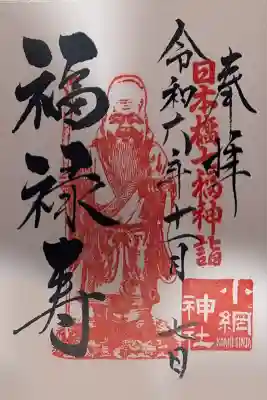 奉拝
日本橋七福神詣
令和六年十一月七日
福禄寿
小網
神社
KOAMI JINJA